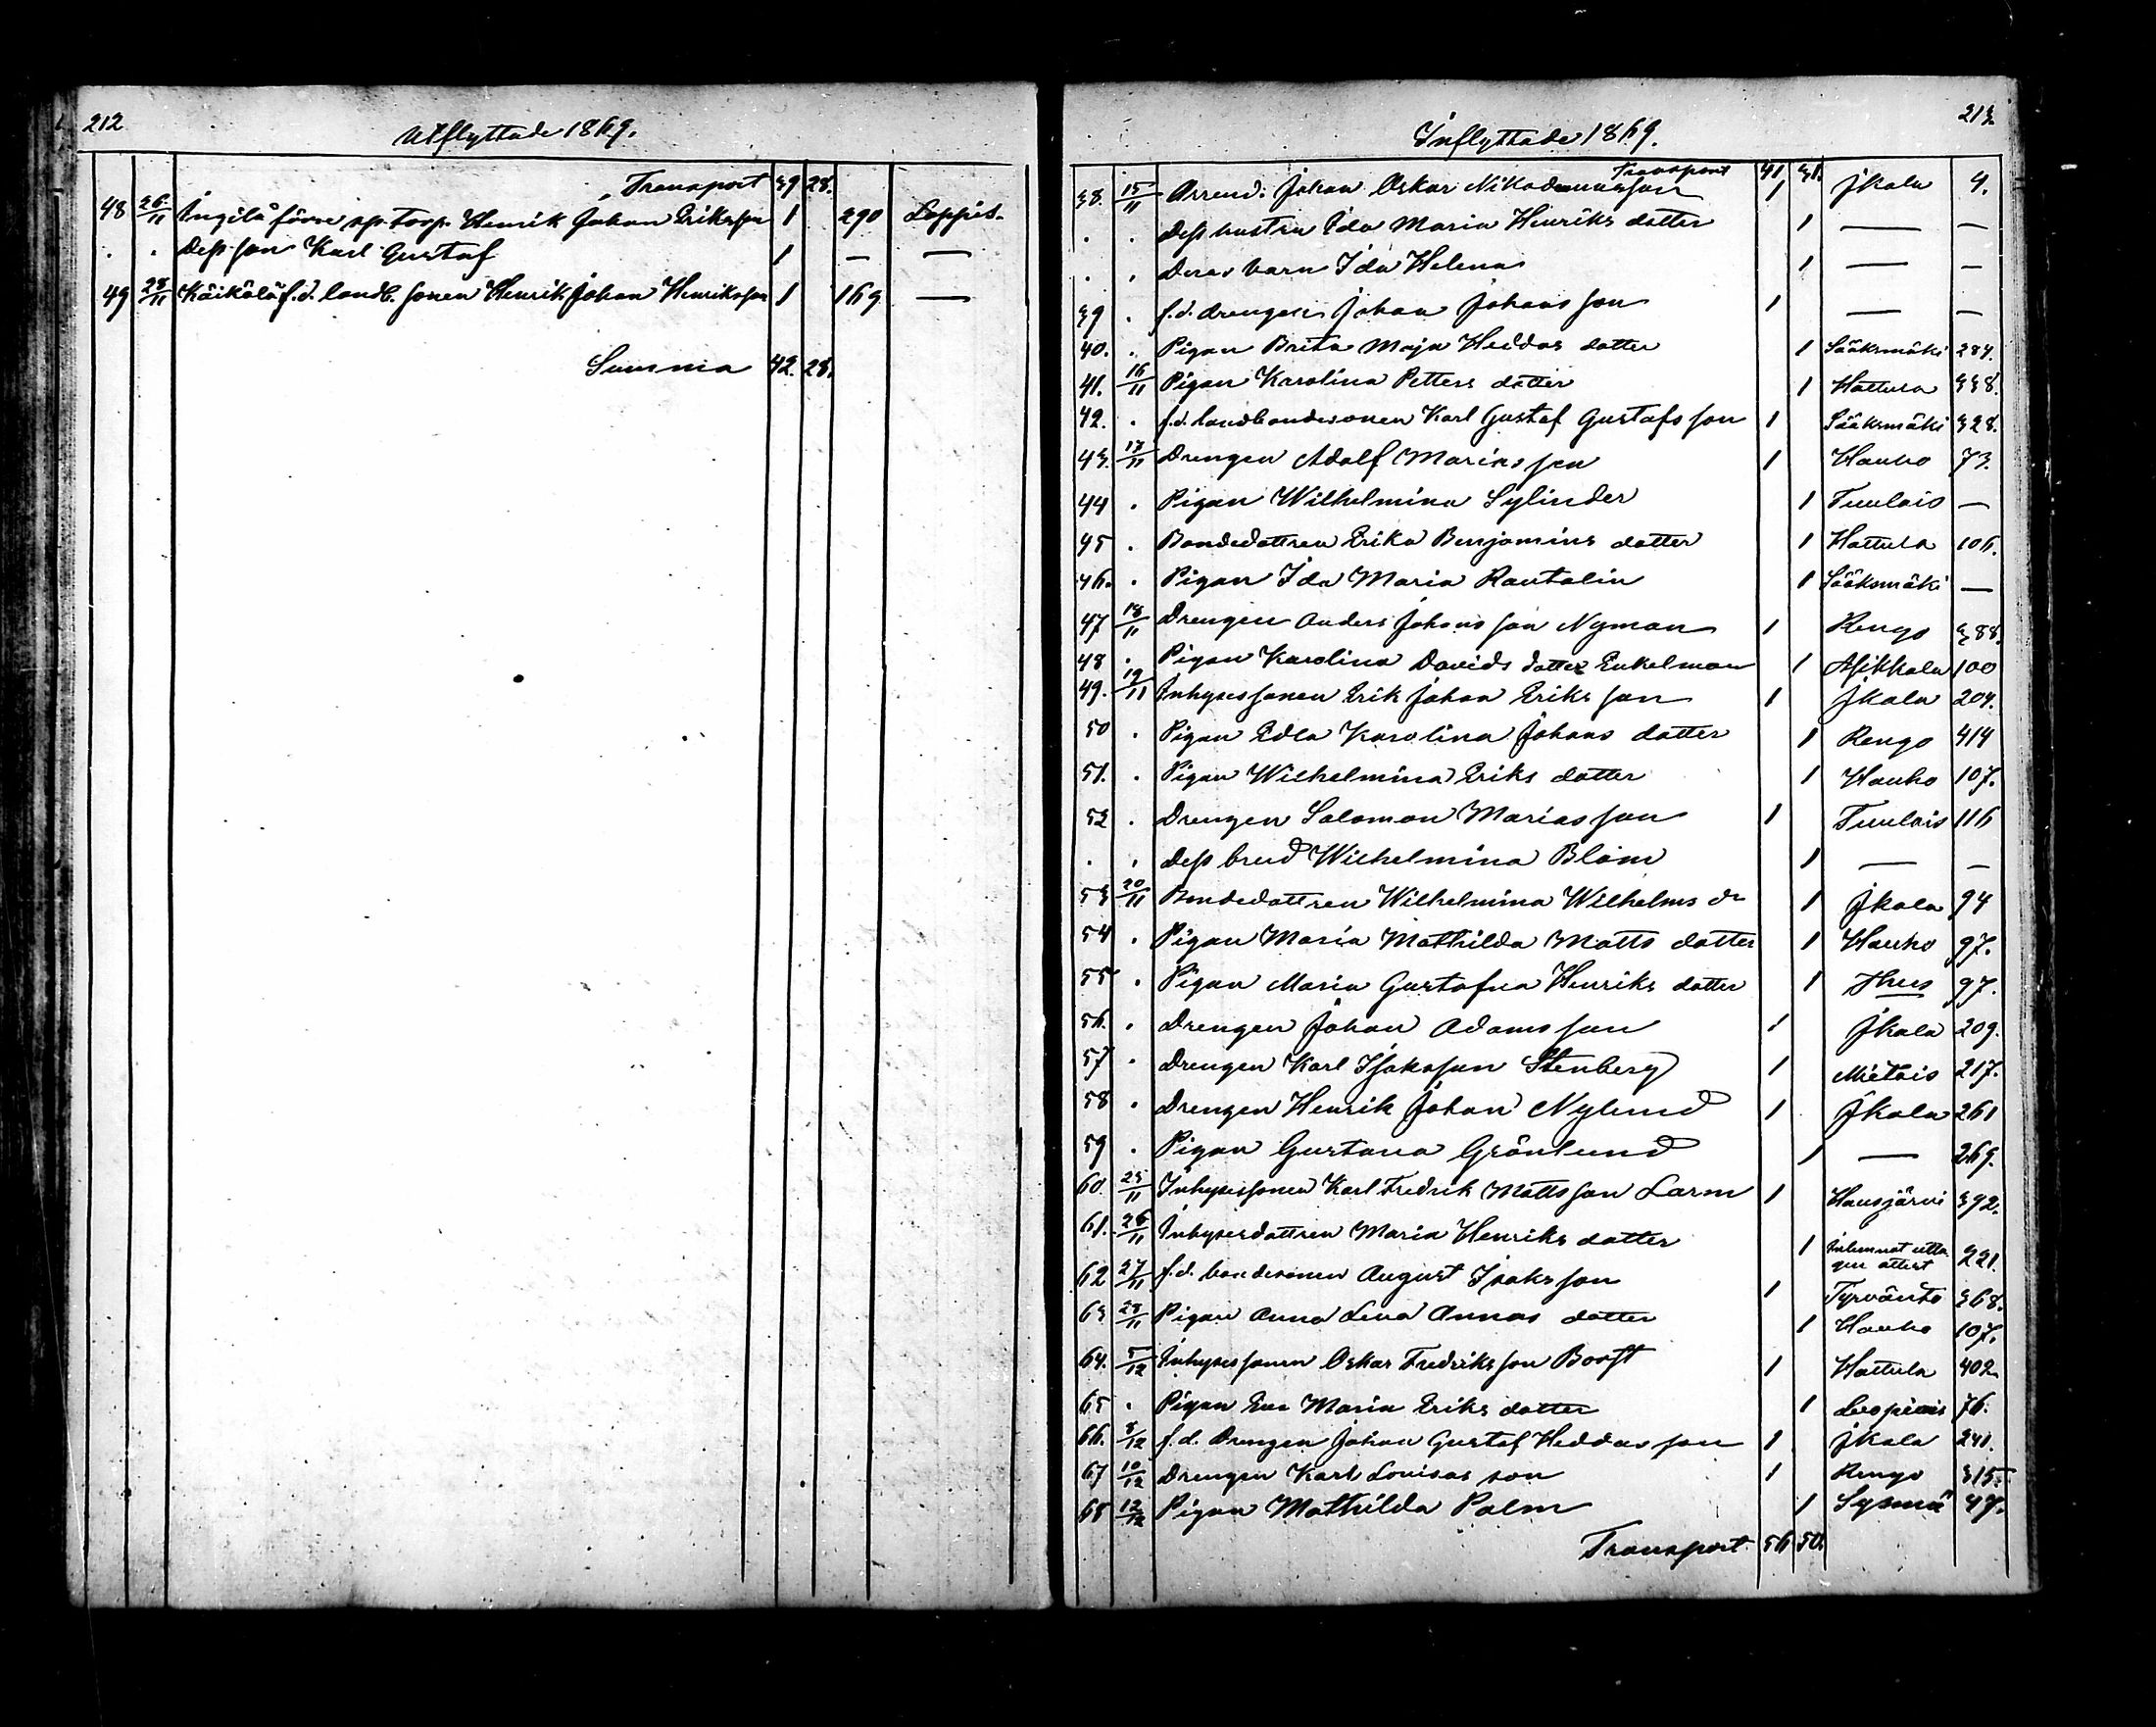 212
Utflyttade 1869.
Transport 39 28.
48 26/11 Ingilä förre sp. Torp. Henrik Johan Eriksson 1 290 Loppis.
. . Dess son Karl Gustaf 1 — —
49 28/11 Käikälä f.d. landb. sonen Henrik Johan Henriksson 1 169 —
Summa 42. 28.
213.
Inflyttade 1869.
Transport 41 31.
38. 15/11 Arrend. Johan Oskar Nikodemusson 1 Jkala 4.
. . Dess hustru Ida Maria Henriks dotter 1 — —
. . Deras barn Ida Helena 1 — —
39 . f.d. drengen Johan Johansson 1 — —
40. . Pigan Brita Maja Heddas dotter 1 Sääksmäki 284.
41. 16/11 Pigan Karolina Petters dotter 1 Hattula 338.
42. . f.d. landbondesonen Karl Gustaf Gustafsson 1 Sääksmäki 328.
43. 17/11 Drengen Adolf Mariasson 1 Hauho 73.
44 . Pigan Wilhelmina Sylinder 1 Tuulois —
45 . Bondedottren Erika Benjamins dotter 1 Hattula 106.
46. . Pigan Ida Maria Rautalin 1 Sääksmäki —
47 18/11 Drengen Anders Johansson Nyman 1 Rengo 388.
48 . Pigan Karolina Davids dotter Enkelman 1 Asikkala 100
49. 19/11 Inhysessonen Erik Johan Eriksson 1 Jkala 204.
50 . Pigan Edla Karolina Johans dotter 1 Rengo 414
51. . Pigan Wilhelmina Eriks dotter 1 Hauho 107.
52 . Drengen Salomon Mariasson 1 Tuulois 116
. . Dess brud Wilhelmina Blom 1 — —
53 20/11 Bondedottren Wilhelmina Wilhelms dr 1 Jkala 94
54 . Pigan Maria Mathilda Matts dotter 1 Hauho 97.
55 . Pigan Maria Gustafva Henriks dotter 1 Thus 97.
56. . Drengen Johan Adamsson 1 Jkala 209.
57 . Drengen Karl Isaksson Stenberg 1 Mietois 217.
58 . Drengen Henrik Johan Nylund 1 Jkala 261
59 . Pigan Gustava Grönlund 1 — 269.
60. 25/11 Inhysessonen Karl Fredrik Mattsson Larm 1 Hausjärvi 392.
61. 26/11 Inhysesdottren Maria Henriks dotter 1 Inlemnat utta gen attest 221.
62 27/11 f.d. bondesonen August Isaksson 1 Tyrväntö 368.
63 28/11 Pigan Anna Lena Annas dotter 1 Hauho 107.
64. 5/12 Inhysessonen Oskar Fredriksson Booft 1 Hattula 402
65 . Pigan Eva Maria Eriks dotter 1 76.
66. 8/12 f.d. Drengen Johan Gustaf Heddasson 1 Jkala 241.
67 10/12 Drengen Karl Louisas son 1 Rengo 315.
68 12/12 Pigan Mathilda Palm 1 Sysmä 47.
Transport 56 50.